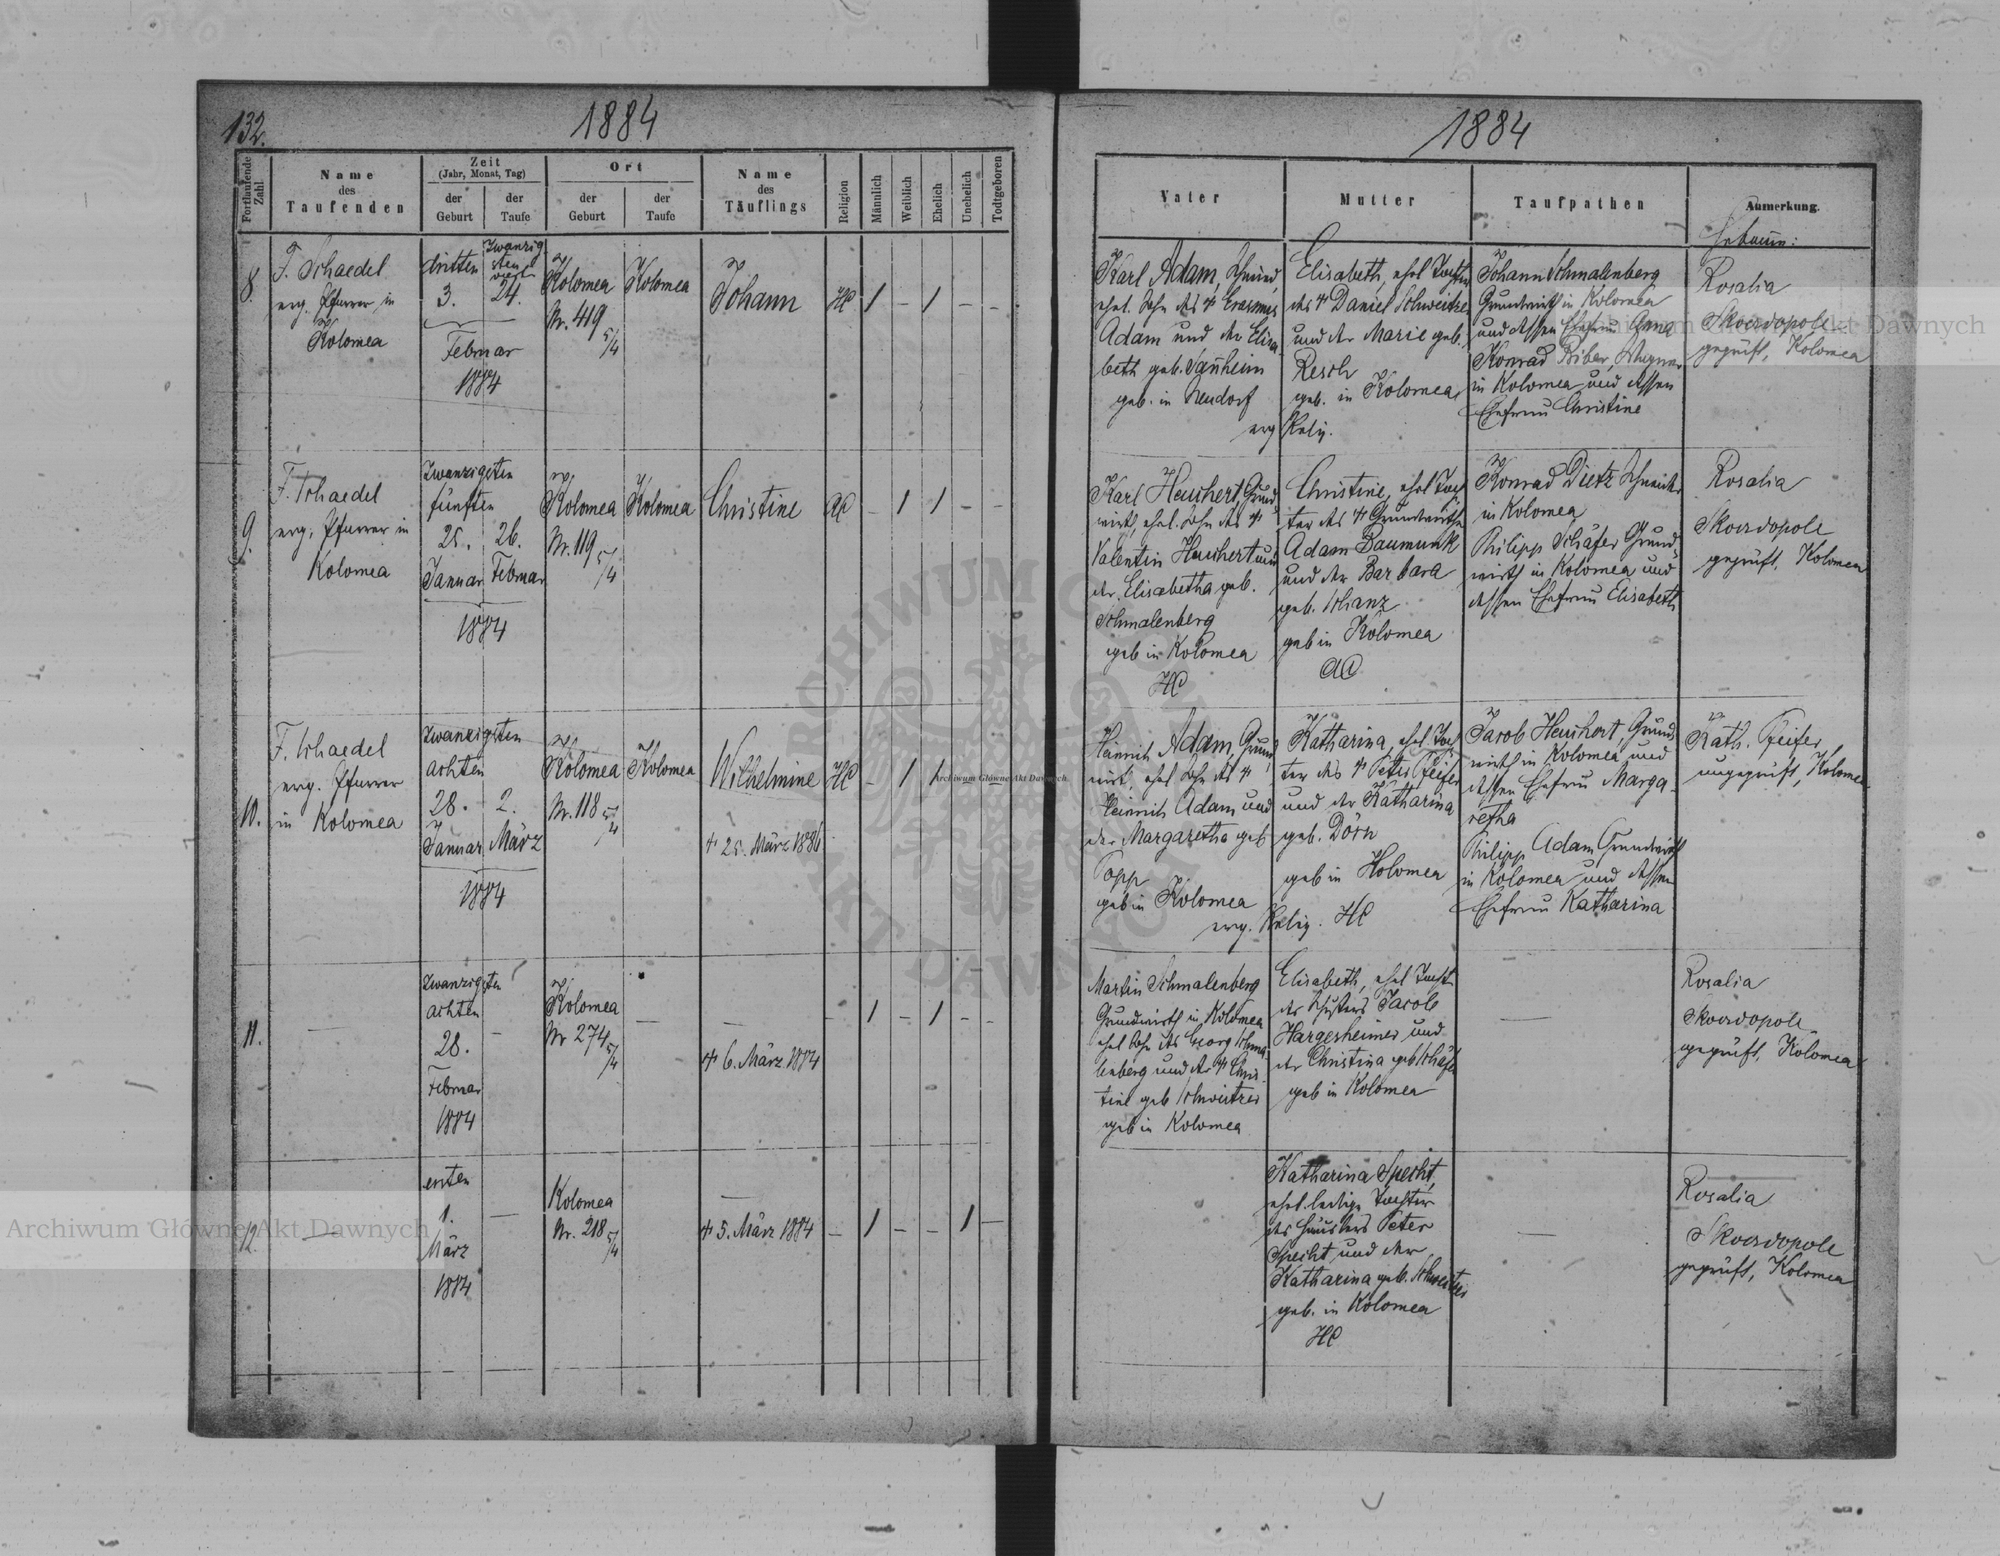 132.
1884
Fortlaufende Zahl
Name des Taufenden
Zeit
(Jahr, Monat, Tag)
der Geburt
der Taufe
Ort
der Geburt
der Taufe
Name des Täuflings
Religion
Männlich
Weiblich
Ehelich
Unehelich
Todtgeboren
8.
F. Schaedel
erg. Pfarrer in
Kolomea
dritten
3.
Zwanzig
sten
viert
24.
Februar
1884
Kolomea
Nr. 419
5/4
Kolomea
Johann
HC
1 – 1 – –
9.
F. Schaedel
erg. Pfarrer in
Kolomea
Zwanzigsten
fünften
25. 26.
Januar Februar
1884
Kolomea
Nr. 119
5/4
Kolomea
Christine
AC
– 1 1 – –
10.
F. Schaedel
erg. Pfarrer
in Kolomea
Zwanzigsten
achten
28. 2.
Januar März
1884
Kolomea
Nr. 118
5/4
Kolomea
Wilhelmine
† 25. März 1886
HC
– 1 1 – –
11.
—
Zwanzigsten
achten
28. –
Februar
1884
Kolomea
Nr 274
5/4
—
—
† 6. März 1884
– 1 – 1 – –
12.
—
ersten
1. —
März
1884
Kolomea
Nr. 218
5/4
—
† 5. März 1884
– 1 – – 1 —
1884
Vater
Mutter
Taufpathen
Anmerkung.
Hebamme:
Karl Adam, Schmied,
ehel. Sohn des † Erasmus
Adam und der Elisa-
beth geb. Sauheim
geb. in Neudorf
erg Relig.
Elisabeth, ehel Tochter
des † Daniel Schweitzer
und der Marie geb.
Resch
geb. in Kolomea
Johann Schmalenberg
Grundwirth in Kolomea
und dessen Ehefrau Anna
Konrad Biber, Wagner
in Kolomea und dessen
Ehefrau Christine
Rosalia
Skordopole
geprüft, Kolomea
Karl Heuchert, Grund
wirth, ehel. Sohn des †
Valentin Heuchert und
der Elisabetha geb.
Schmalenberg
geb in Kolomea
HC
Christine, ehel Toch
ter des † Grundwirths
Adam Baumunk
und der Barbara
geb. Schanz
geb in Kolomea
AC
Konrad Dietz Schneider
in Kolomea
Philipp Schäfer Grund
wirth in Kolomea und
dessen Ehefrau Elisabeth
Rosalia
Skordopole
geprüft, Kolomea
Heinrich Adam, Grund
wirt, ehel Sohn des †
Heinrich Adam und
der Margaretha geb
Popp
geb in Kolomea
erg. Relig. HC
Katharina, ehel Toch
ter des † Peter Pfeifer
und der Katharina
geb. Dörn
geb in Kolomea
Jacob Heuchert, Grund
wirth in Kolomea und
dessen Ehefrau Marga-
retha
Philipp Adam Grundwirth
in Kolomea und dessen
Ehefrau Katharina
Kath. Pfeifer
ungeprüft, Kolomea
Martin Schmalenberg
Grundwirth in Kolomea
ehel Sohn des Georg Schma-
lenberg und der † Chris-
tine geb Schweitzer
geb in Kolomea
Elisabeth, ehel Tochter
des Schusters Jacob
Hargesheimer und
der Christina geb Schäfer
geb in Kolomea
—
Rosalia
Skordopole
geprüft, Kolomea
Katharina Specht,
ehel. ledige Tochter
des Häuslers Peter
Specht und der
Katharina geb. Schweitzer
geb. in Kolomea
HC
—
Rosalia
Skordopole
geprüft, Kolomea
Archiwum Główne Akt Dawnych
Archiwum Główne Akt Dawnych
Archiwum Główne Akt Dawnych
ARCHIWUM GŁÓWNE AKT DAWNYCH